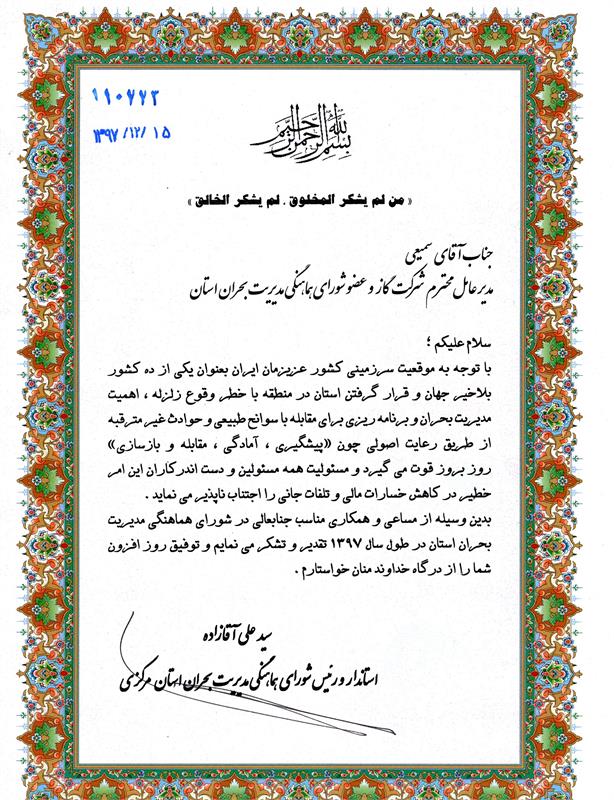 ۱۱۰۶۶۲
۱۳۹۷/۱۲/۱۵
بسم الله الرحمن الرحیم
« من لم یشکر المخلوق ، لم یشکر الخالق »
جناب آقای سمیعی
مدیر عامل محترم شرکت گاز و عضو شورای هماهنگی مدیریت بحران استان
سلام علیکم ؛
با توجه به موقعیت سرزمینی کشور عزیزمان ایران بعنوان یکی از ده کشور
بلاخیز جهان و قرار گرفتن استان در منطقه با خطر وقوع زلزله ، اهمیت
مدیریت بحران و برنامه ریزی برای مقابله با سوانح طبیعی و حوادث غیر مترقبه
از طریق رعایت اصولی چون «پیشگیری ، آمادگی ، مقابله و بازسازی»
روز بروز قوت می گیرد و مسئولیت همه مسئولین و دست اندرکاران این امر
خطیر در کاهش خسارات مالی و تلفات جانی را اجتناب ناپذیر می نماید .
بدین وسیله از مساعی و همکاری مناسب جنابعالی در شورای هماهنگی مدیریت
بحران استان در طول سال ۱۳۹۷ تقدیر و تشکر می نمایم و توفیق روز افزون
شما را از درگاه خداوند منان خواستارم .
سید علی آقازاده
استاندار و رئیس شورای هماهنگی مدیریت بحران استان مرکزی